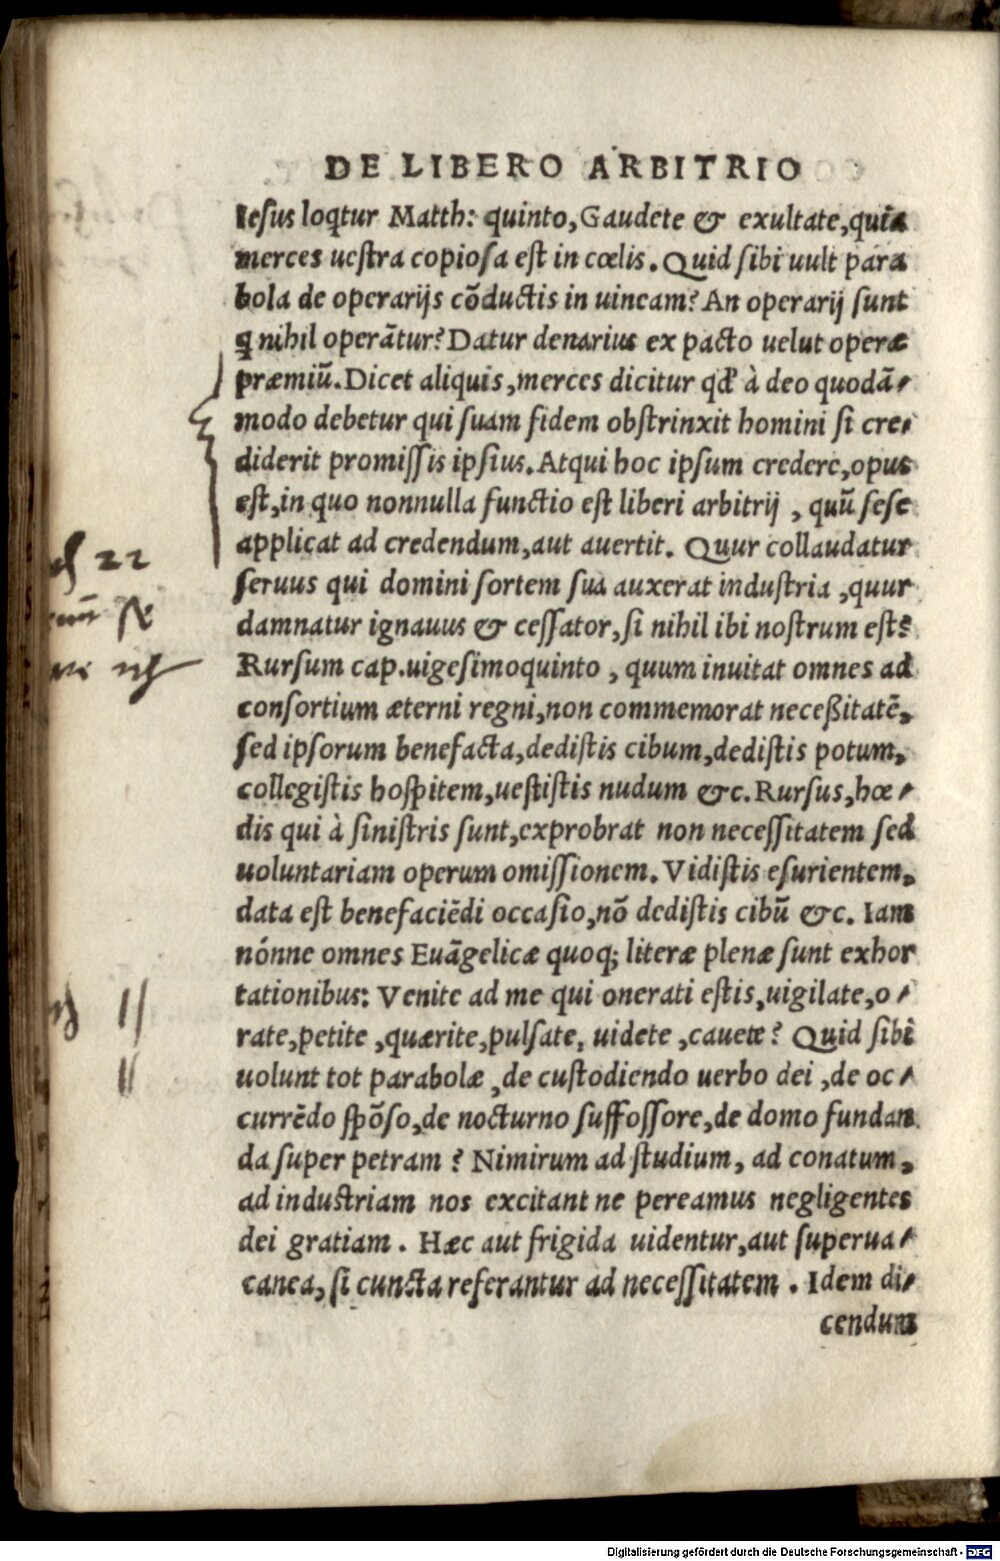 DE LIBERO ARBITRIO
Iesus loqtur Matth: quinto, Gaudete & exultate, quia
merces uestra copiosa est in cœlis. Quid sibi uult para
bola de operarijs cõductis in uineam? An operarij sunt
q nihil operãtur? Datur denarius ex pacto uelut operæ
præmiũ. Dicet aliquis, merces dicitur qđ à deo quodã⸗
modo debetur qui suam fidem obstrinxit homini si cre⸗
diderit promissis ipsius. Atqui hoc ipsum credere, opus
est, in quo nonnulla functio est liberi arbitrij, quũ sese
applicat ad credendum, aut auertit. Quur collaudatur
seruus qui domini sortem sua auxerat industria, quur
damnatur ignauus & cessator, si nihil ibi nostrum est?
Rursum cap. uigesimoquinto, quum inuitat omnes ad
consortium æterni regni, non commemorat neceßitatẽ,
sed ipsorum benefacta, dedistis cibum, dedistis potum,
collegistis hospitem, uestistis nudum &c. Rursus, hœ⸗
dis qui à sinistris sunt, exprobrat non necessitatem sed
uoluntariam operum omissionem. Vidistis esurientem,
data est benefaciẽdi occasio, nõ dedistis cibũ &c. Iam
nónne omnes Euãgelicæ quoq; literæ plenæ sunt exhor
tationibus: Venite ad me qui onerati estis, uigilate, o⸗
rate, petite, quærite, pulsate, uidete, cauete? Quid sibi
uolunt tot parabolæ, de custodiendo uerbo dei, de oc⸗
currẽdo spõso, de nocturno suffossore, de domo fundan
da super petram? Nimirum ad studium, ad conatum,
ad industriam nos excitant ne pereamus negligentes
dei gratiam. Hæc aut frigida uidentur, aut superua⸗
canea, si cuncta referantur ad necessitatem. Idem di⸗
cendum
22
11
Digitalisierung gefördert durch die Deutsche Forschungsgemeinschaft - DFG